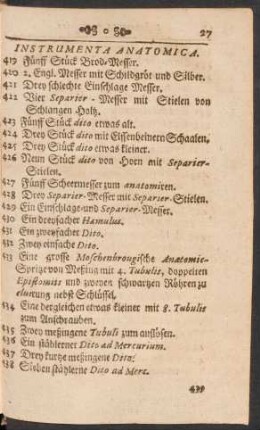 o
27
INSTRUMENTA ANATOMICA.
419 Fünff Stück Brod-Messer.
420 2. Engl. Messer mit Schildgröt und Silber.
421 Drey schlechte Einschlage Messer.
422 Vier Separier - Messer mit Stielen von
Schlangen-Holtz.
423 Fünff Stück dito etwas alt.
424 Drey Stück dito mit Elffenbeinern Schaalen.
425 Drey Stück dito etwas kleiner.
426 Neun Stück dito von Horn mit Separier-
Stielen.
427 Fünff Scheermesser zum anatomiren.
428 Drey Separier-Messer mit Separier-Stielen.
429 Ein Einschlage-und Separier-Messer.
430 Ein dreyfacher Hamulus.
431 Ein zweyfacher Dito.
432 Zwey einfache Dito.
433 Eine grosse Moschenbrougische Anatomie-
Spritze von Meßing mit 4. Tubulis, doppelten
Epistomiis und zweyen schwartzen Röhren zu
eluirung nebst Schlüssel.
434 Eine dergleichen etwas kleiner mit 8. Tubulis
zum Anschrauben.
435 Zwey meßingene Tubuli zum auslösen.
436 Ein stählerner Dito ad Mercurium.
437 Drey kurtze meßingene Dito.
438 Sieben stählerne Dito ad Merc.
439